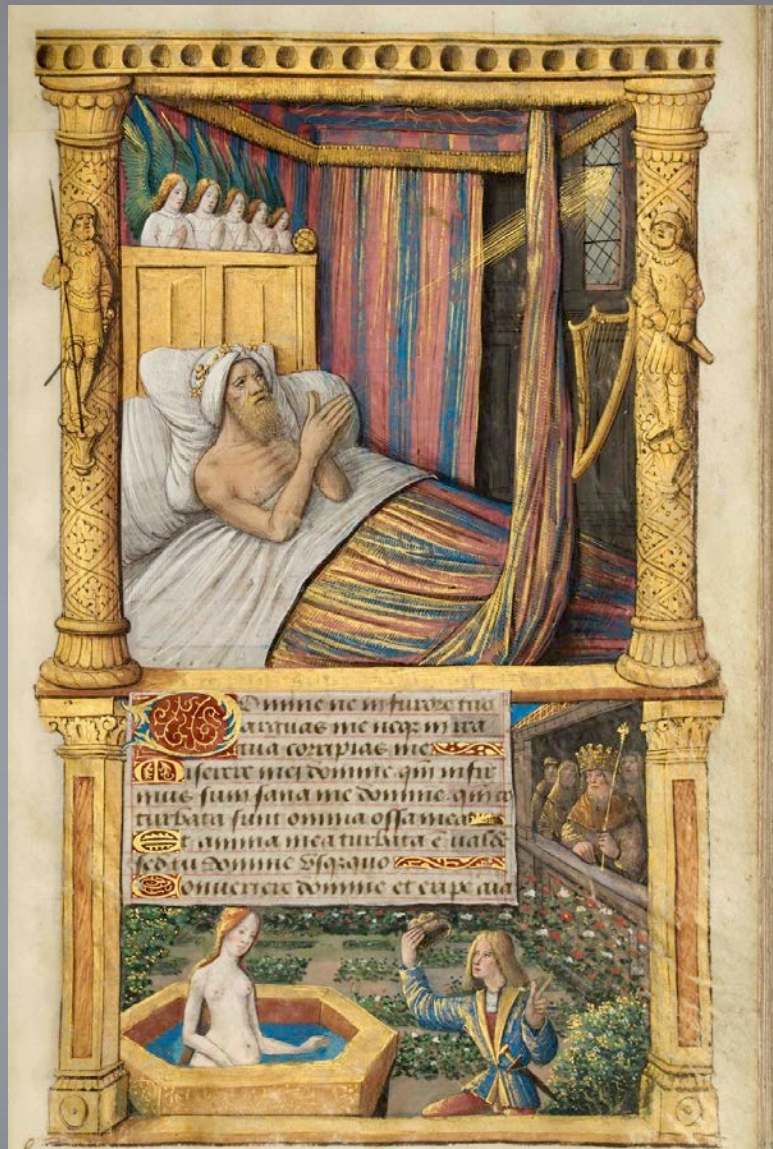 Domine ne in furore tuo
arguas me neq in ira
tua corripias me
Miserere mei domine qm infir
mus sum sana me domine qm co
turbata sunt omnia ossa mea
Et anima mea turbata e valde
sed tu domine usquequo
Convertere domine et eripe aia